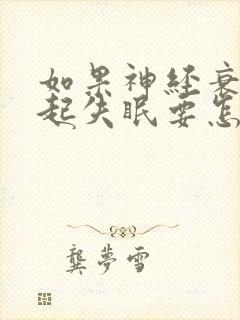 如果神经衰
起失眠要怎
龚夢雪